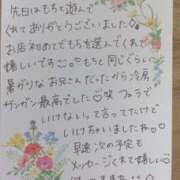 先日はもちと遊んで
くれてありがとうございました
お店初めてでもちを選んでくれて
嬉しいです もちと同じくらい
暑がりなお兄さんだったから冷房
ガンガン最高でした 笑 フェラで
いけないって言ってたけど
いけちゃいました
早速次の予定も
メッセージくれて嬉しい